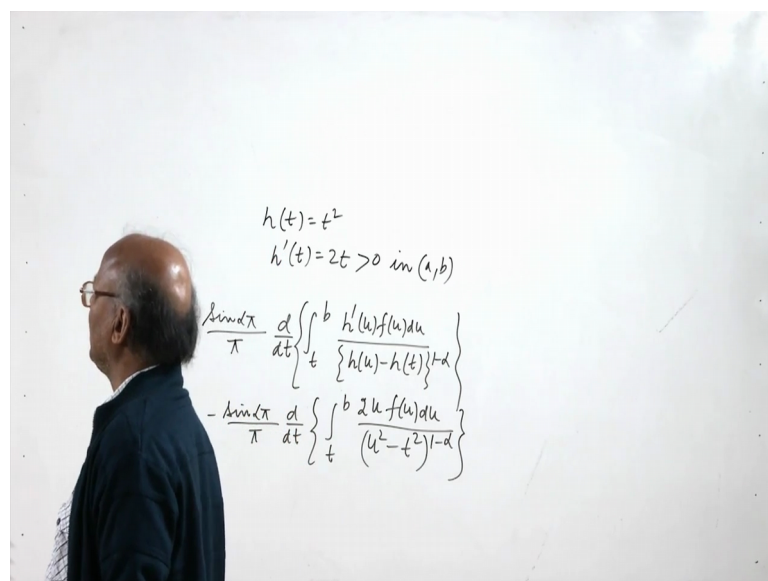 h(t) = t²
h'(t) = 2t > 0 in (a, b)
sin απ / π d/dt { ∫_t^b h'(u) f(u) du / {h(u) − h(t)}^{1−α} }
− sin απ / π d/dt { ∫_t^b 2u f(u) du / (u² − t²)^{1−α} }